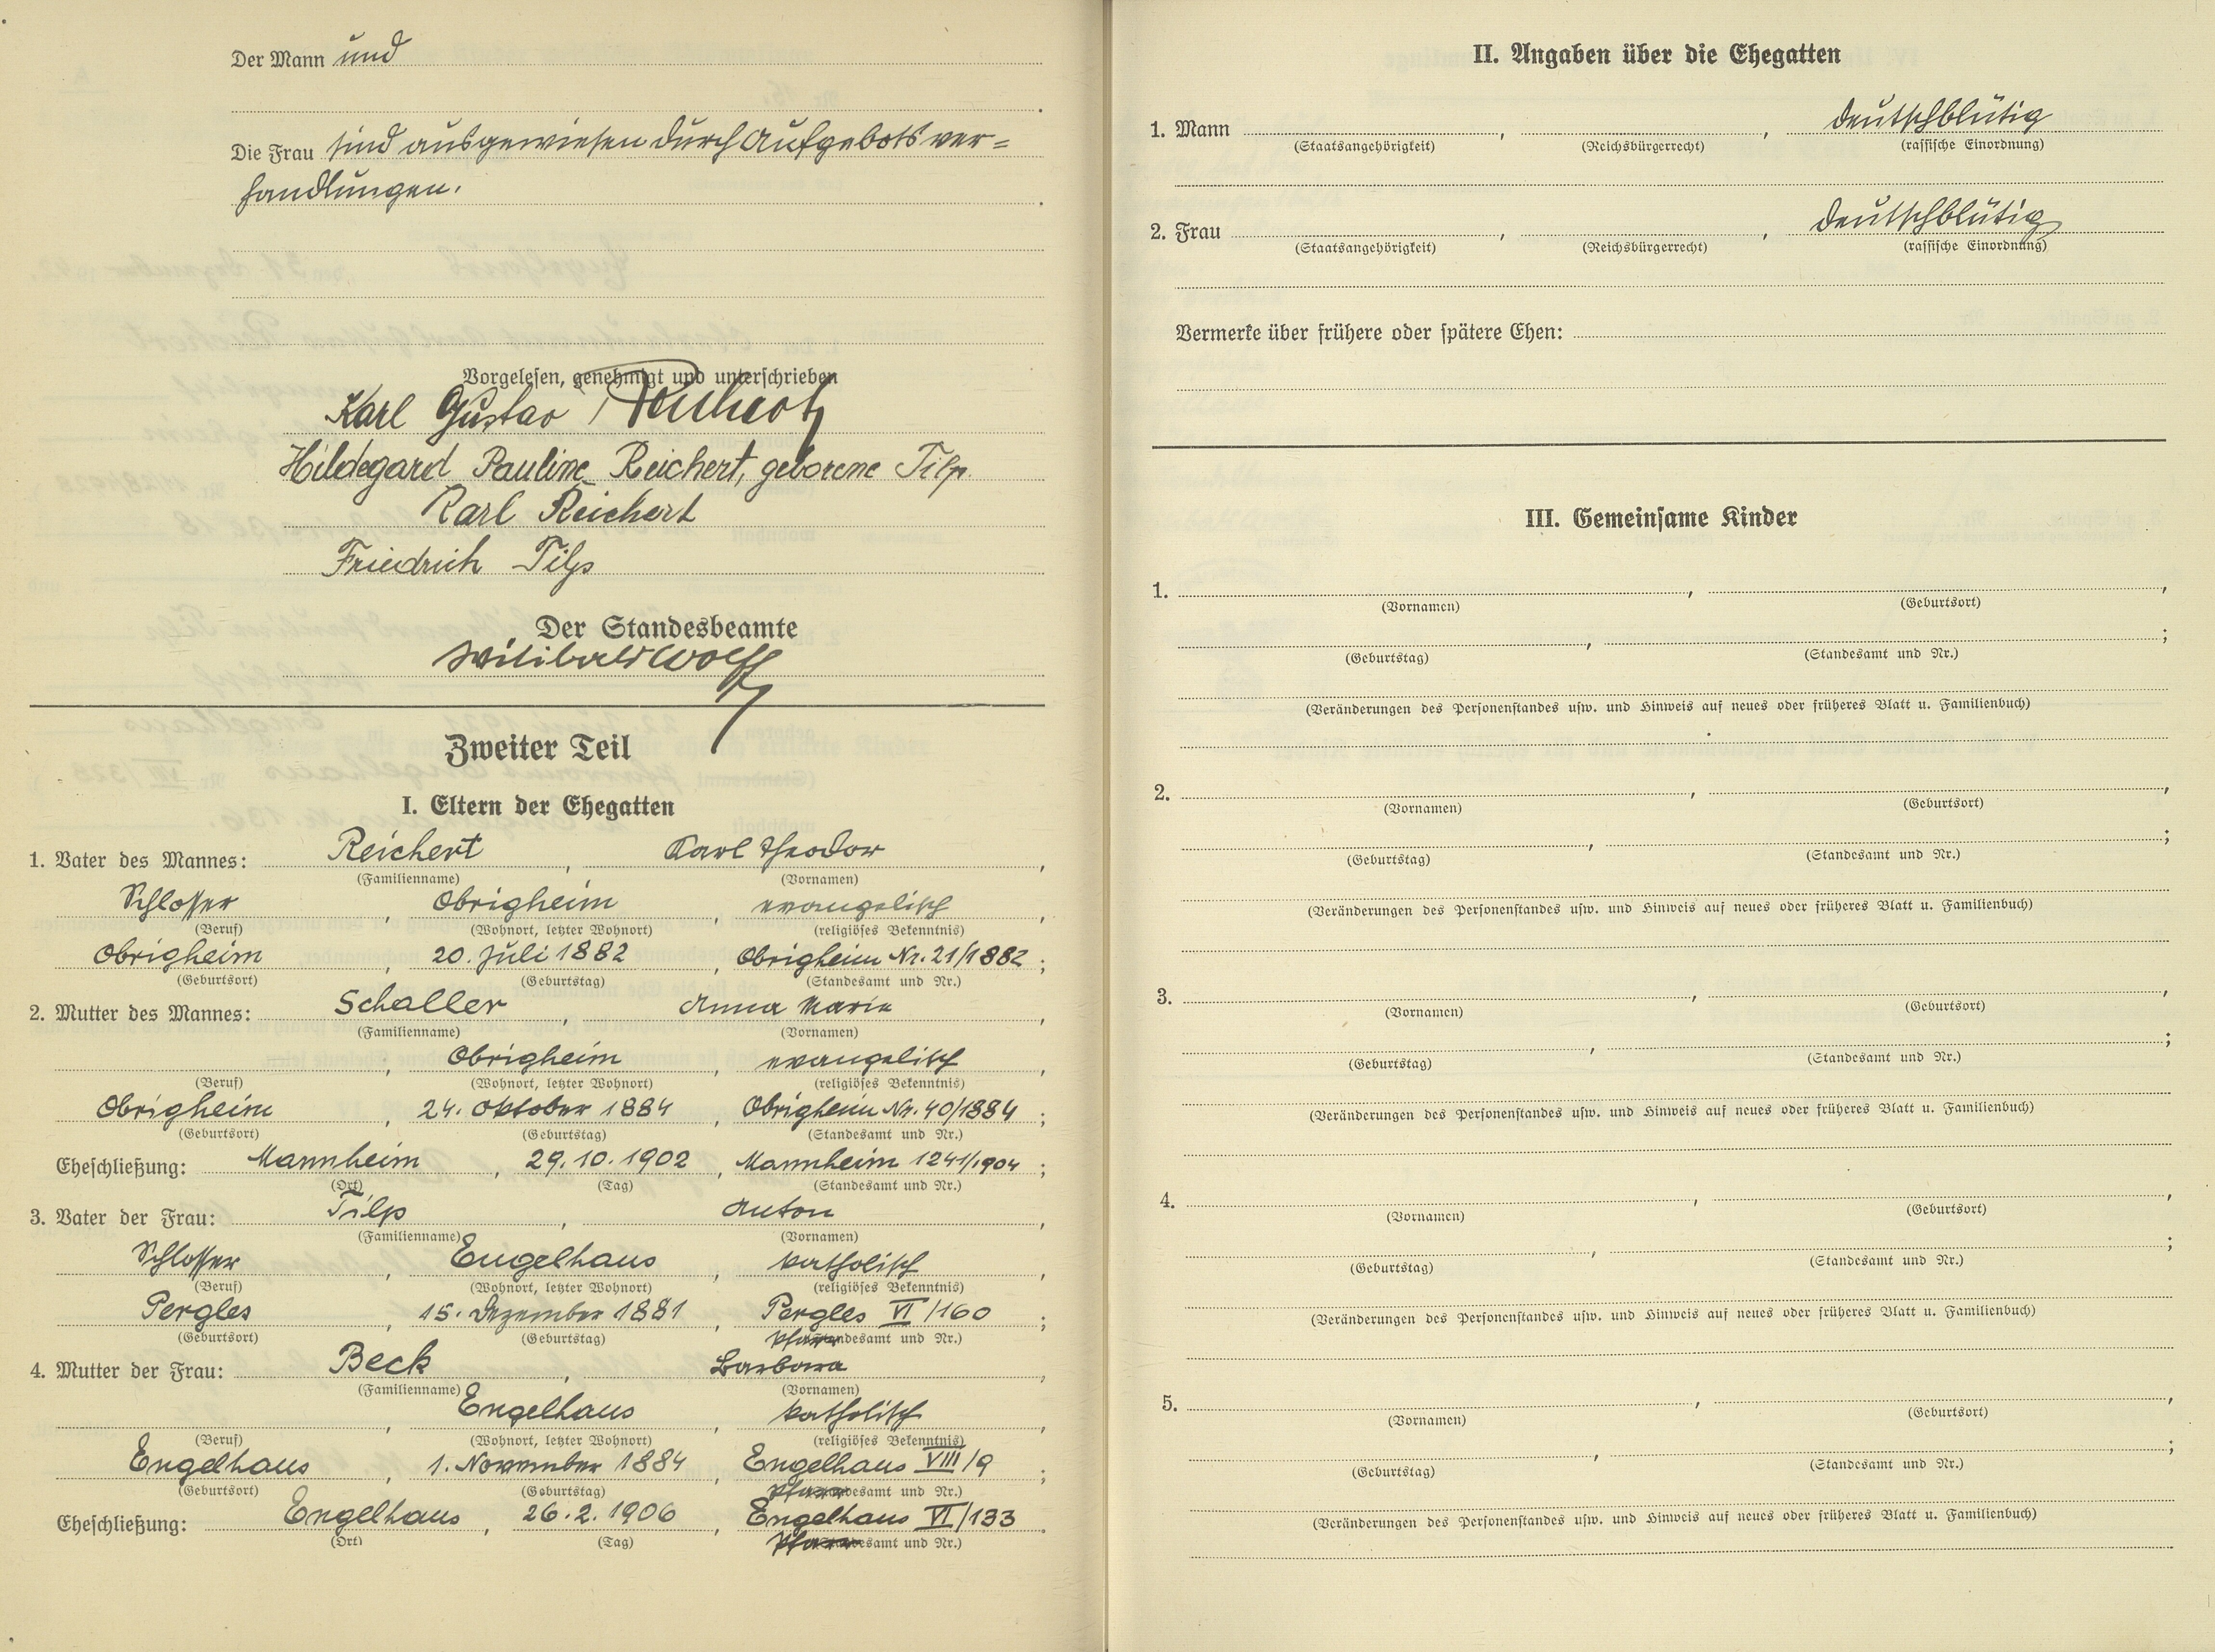 Der Mann und
Die Frau sind ausgewiesen durch Aufgebotsver=
handlungen.
Vorgelesen, genehmigt und unterschrieben
Karl Gustav Reichert
Hildegard Pauline Reichert, geborene Tilp.
Karl Reichert
Friedrich Tilp
Der Standesbeamte
Wilibald Wolff
Zweiter Teil
I. Eltern der Ehegatten
1. Vater des Mannes: Reichert, Karl Theodor,
(Familienname) (Vornamen)
Schlosser, Obrigheim, evangelisch,
(Beruf) (Wohnort, letzter Wohnort) (religiöses Bekenntnis)
Obrigheim, 20. Juli 1882, Obrigheim Nr. 21/1882;
(Geburtsort) (Geburtstag) (Standesamt und Nr.)
2. Mutter des Mannes: Schaller, Anna Marie,
(Familienname) (Vornamen)
, Obrigheim, evangelisch,
(Beruf) (Wohnort, letzter Wohnort) (religiöses Bekenntnis)
Obrigheim, 24. Oktober 1884, Obrigheim Nr. 40/1884;
(Geburtsort) (Geburtstag) (Standesamt und Nr.)
Eheschließung: Mannheim, 29.10.1902, Mannheim 1241/1904;
(Ort) (Tag) (Standesamt und Nr.)
3. Vater der Frau: Tilp, Anton,
(Familienname) (Vornamen)
Schlosser, Engelhaus, katholisch,
(Beruf) (Wohnort, letzter Wohnort) (religiöses Bekenntnis)
Pergles, 15. Dezember 1881, Pergles VI/160;
(Geburtsort) (Geburtstag) Pfarramt und Nr.)
4. Mutter der Frau: Beck, Barbara,
(Familienname) (Vornamen)
, Engelhaus, katholisch,
(Beruf) (Wohnort, letzter Wohnort) (religiöses Bekenntnis)
Engelhaus, 1. November 1884, Engelhaus VIII/9;
(Geburtsort) (Geburtstag) Pfarramt und Nr.)
Eheschließung: Engelhaus, 26.2.1906, Engelhaus VI/133.
(Ort) (Tag) Pfarramt und Nr.)
II. Angaben über die Ehegatten
1. Mann , , deutschblütig
(Staatsangehörigkeit) (Reichsbürgerrecht) (rassische Einordnung)
2. Frau , , deutschblütig
(Staatsangehörigkeit) (Reichsbürgerrecht) (rassische Einordnung)
Vermerke über frühere oder spätere Ehen:
III. Gemeinsame Kinder
1. , ,
(Vornamen) (Geburtsort)
, ;
(Geburtstag) (Standesamt und Nr.)
(Veränderungen des Personenstandes usw. und Hinweis auf neues oder früheres Blatt u. Familienbuch)
2. , ,
(Vornamen) (Geburtsort)
, ;
(Geburtstag) (Standesamt und Nr.)
(Veränderungen des Personenstandes usw. und Hinweis auf neues oder früheres Blatt u. Familienbuch)
3. , ,
(Vornamen) (Geburtsort)
, ;
(Geburtstag) (Standesamt und Nr.)
(Veränderungen des Personenstandes usw. und Hinweis auf neues oder früheres Blatt u. Familienbuch)
4. , ,
(Vornamen) (Geburtsort)
, ;
(Geburtstag) (Standesamt und Nr.)
(Veränderungen des Personenstandes usw. und Hinweis auf neues oder früheres Blatt u. Familienbuch)
5. , ,
(Vornamen) (Geburtsort)
, ;
(Geburtstag) (Standesamt und Nr.)
(Veränderungen des Personenstandes usw. und Hinweis auf neues oder früheres Blatt u. Familienbuch)